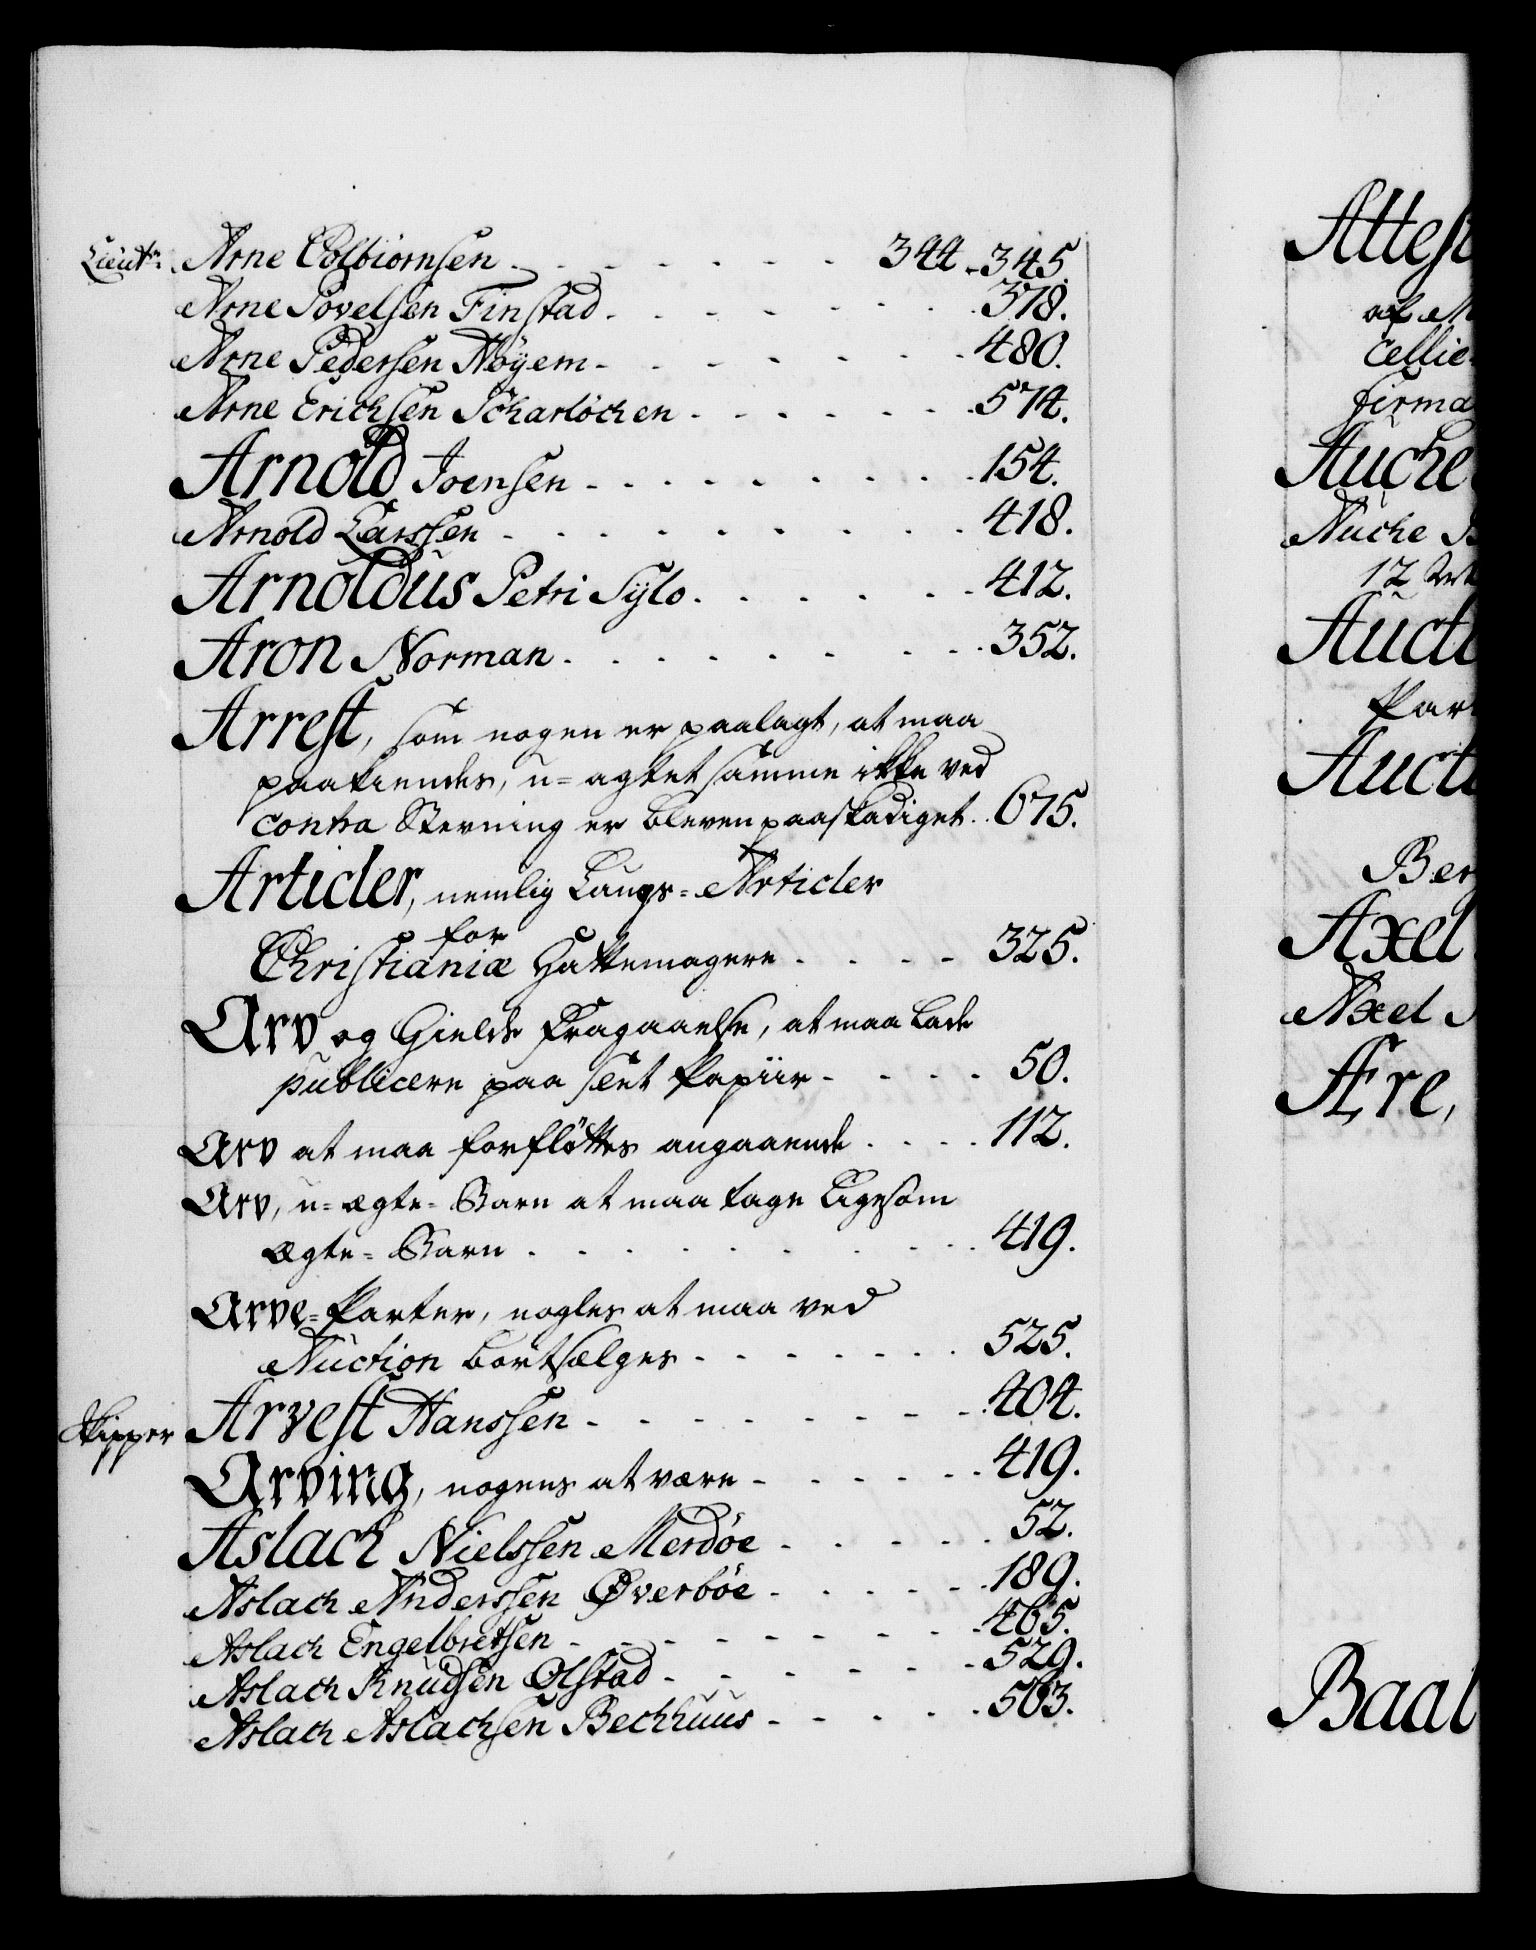 Lieutn: Arne Colbiørnsen . . . . . . . 344. 345.
Arne Povelsen Finstad . . . . . . . 378.
Arne Pedersen Høÿem - . . . . . . . 480.
Arne Erichsen Scharlöchen . . . . . . 574.
Arnold Joensen - . . . . . . . . 154.
Arnold Larssen . . . . . . . . . 418.
Arnoldus Petri Sylo . . . . . . . 412.
Aron Norman . . . . . . . . . 352.
Arrest, som nogen er paalagt, at maa
paakiendes, u-agtet samme ikke ved
contra Stevning er bleven paaskadiget. . 675.
Articler, nemlig Laugs-Articler
for
Christianiæ Hattemagere . . . . 325.
Arv og Gields Fragaaelse, at maa lade
publicere paa slet Papiir . . . . 50.
Arv at maa forfløttes angaaende . . . . 112.
Arv, u-ægte-Barn at maa tage ligesom
Ægte-Barn . . . . . . . . . 419.
Arve-Parter, nogles at maa ved
Auction bortsælges . . . . . . . 525.
Skipper Arvest Hanssen - . . . . . . . . 404.
Arving, nogens at være - . . . . . 419.
Aslach Nielssen Merdøe . . . . . 52.
Aslach Anderssen Øverbøe . . . . . 189.
Aslach Engelbretsen . . . . . . . . . 465.
Aslach Knudsen Olstad . . . . . . . 529.
Aslach Aslachsen Bechhuus - . . . . . 563.
Attest
af
cellie
firma
Auche
Auche
12
Aucti
Part
Aucti
Ber
Axel
Axel
Ære,
Baal